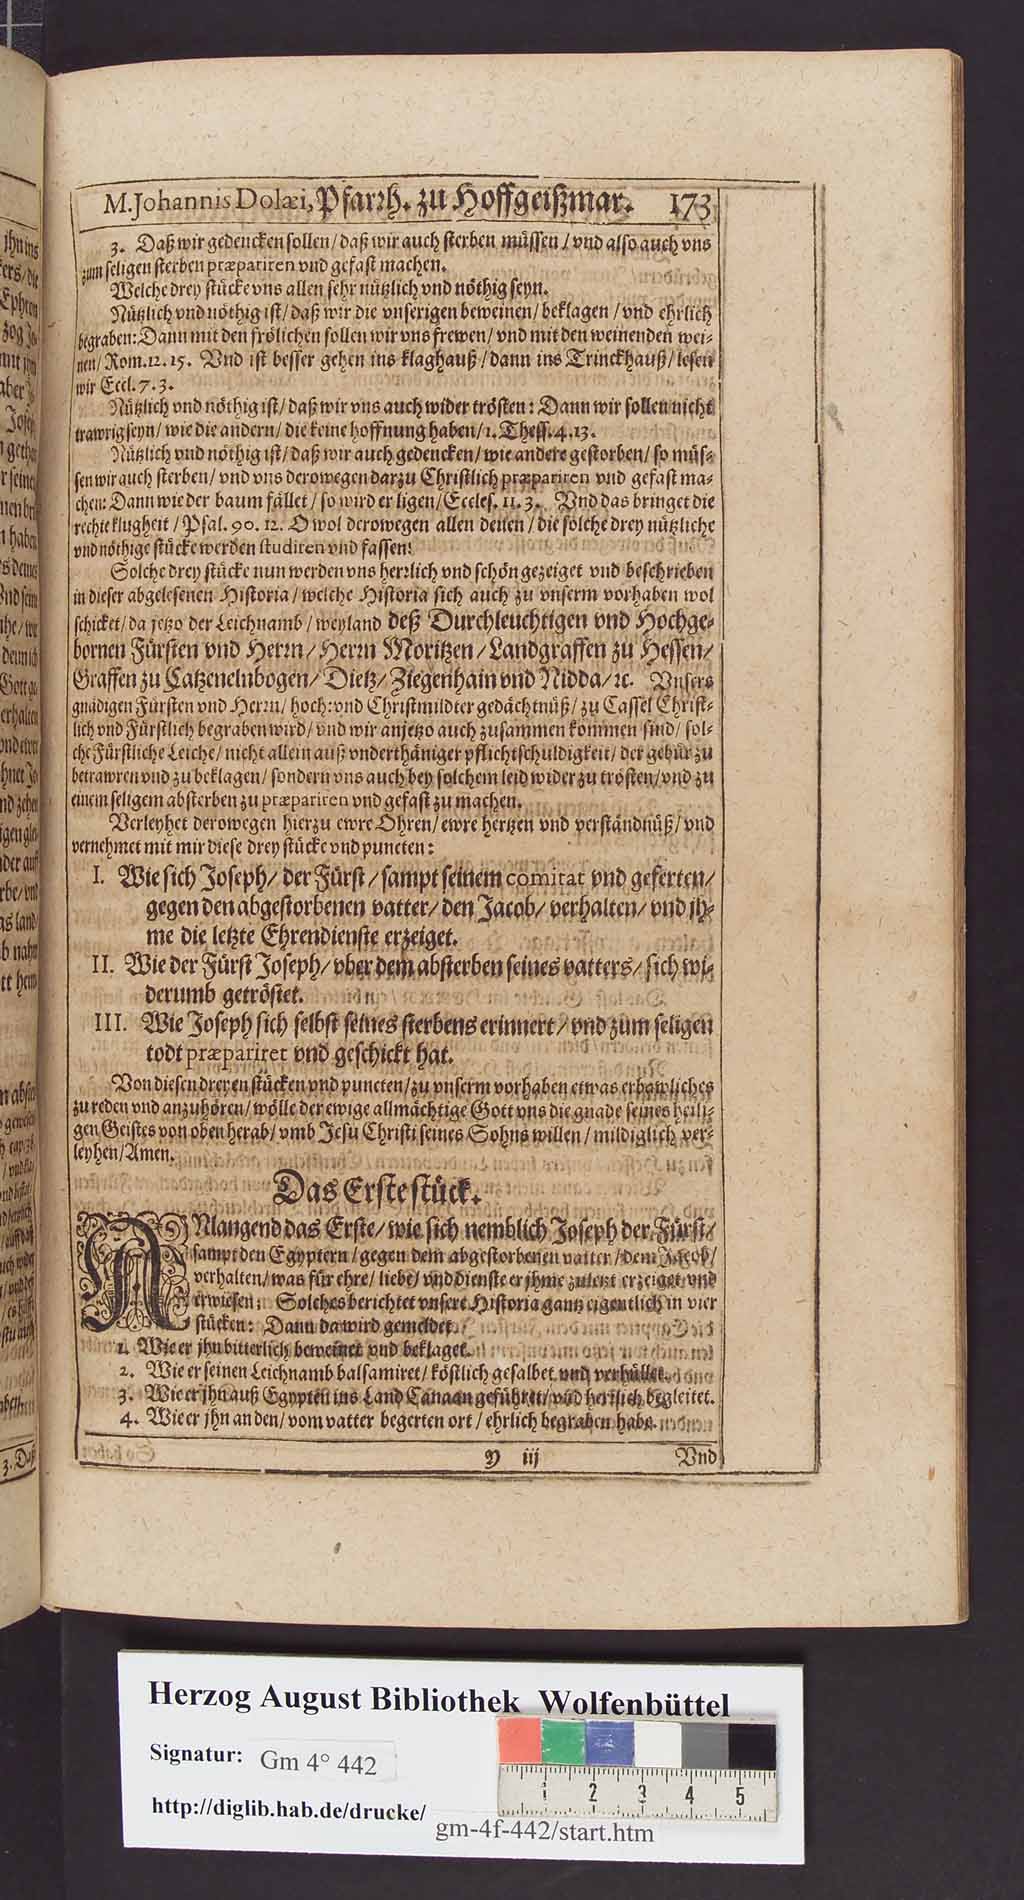 M. Johannis Dolæi, Pfarrh. zu Hoffgeißmar. 173
3. Daß wir gedencken sollen / daß wir auch sterben müssen / vnd also auch vns
zum seligen sterben præpariren vnd gefast machen.
Welche drey stücke vns allen sehr nützlich vnd nöthig seyn.
Nützlich vnd nöthig ist / daß wir die vnserigen beweinen / beklagen / vnd ehrlich
begraben: Dann mit den frölichen sollen wir vns frewen / vnd mit den weinenden wei-
nen / Rom. 12. 15. Vnd ist besser gehen ins klaghauß / dann ins Trinckhauß / lesen
wir Eccl. 7. 3.
Nützlich vnd nöthig ist / daß wir vns auch wider trösten: Dann wir sollen nicht
trawrig seyn / wie die andern / die keine hoffnung haben / 1. Thess. 4. 13.
Nützlich vnd nöthig ist / daß wir auch gedencken / wie andere gestorben / so müs-
sen wir auch sterben / vnd vns derowegen darzu Christlich præpariren vnd gefast ma-
chen: Dann wie der baum fället / so wird er ligen / Eccles. 11. 3. Vnd das bringet die
rechte klugheit / Psal. 90. 12. O wol derowegen allen denen / die solche drey nützliche
vnd nöthige stücke werden studiren vnd fassen!
Solche drey stücke nun werden vns herrlich vnd schön gezeiget vnd beschrieben
in dieser abgelesenen Historia / welche Historia sich auch zu vnserm vorhaben wol
schicket / da jetzo der Leichnamb / weyland deß Durchleuchtigen vnd Hochge-
bornen Fürsten vnd Herrn / Herrn Moritzen / Landgraffen zu Hessen /
Graffen zu Catzenelnbogen / Dietz / Ziegenhain vnd Nidda / ꝛc. Vnsers
gnädigen Fürsten vnd Herrn / hoch: vnd Christmildter gedächtnüß / zu Cassel Christ-
lich vnd Fürstlich begraben wird / vnd wir anjetzo auch zusammen kommen sind / sol-
che Fürstliche Leiche / nicht allein auß vnderthäniger pflichtschuldigkeit / der gebür zu
betrawren vnd zu beklagen / sondern vns auch bey solchem leid wider zu trösten / vnd zu
einem seligem absterben zu præpariren vnd gefast zu machen.
Verleyhet derowegen hierzu ewre Ohren / ewre hertzen vnd verständnüß / vnd
vernehmet mit mir diese drey stücke vnd puncten:
I. Wie sich Joseph / der Fürst / sampt seinem comitat vnd geferten /
gegen den abgestorbenen vatter / den Jacob / verhalten / vnd jh-
me die letzte Ehrendienste erzeiget.
II. Wie der Fürst Joseph / vber dem absterben seines vatters / sich wi-
derumb getröstet.
III. Wie Joseph sich selbst seines sterbens erinnert / vnd zum seligen
todt præpariret vnd geschickt hat.
Von diesen dreyen stücken vnd puncten / zu vnserm vorhaben etwas erbawliches
zu reden vnd anzuhören / wölle der ewige allmächtige Gott vns die gnade seines heili-
gen Geistes von oben herab / vmb Jesu Christi seines Sohns willen / mildiglich ver-
leyhen / Amen.
Das Erste stück.
ANlangend das Erste / wie sich nemblich Joseph der Fürst /
sampt den Egyptern / gegen dem abgestorbenen vatter / dem Jacob /
verhalten / was für ehre / liebe / vnd dienste er jhme zuletzt erzeiget vnd
erwiesen: Solches berichtet vnsere Historia gantz eigentlich in vier
stücken: Dann da wird gemeldet /
1. Wie er jhn bitterlich beweinet vnd beklaget.
2. Wie er seinen Leichnamb balsamiret / köstlich gesalbet vnd verhüllet.
3. Wie er jhn auß Egypten ins Land Canaan geführet / vnd herrlich begleitet.
4. Wie er jhn an den / vom vatter begerten ort / ehrlich begraben habe.
Y iij Vnd
3. Daß
Herzog August Bibliothek Wolfenbüttel
Signatur: Gm 4° 442
http://diglib.hab.de/drucke/
gm-4f-442/start.htm
1 2 3 4 5